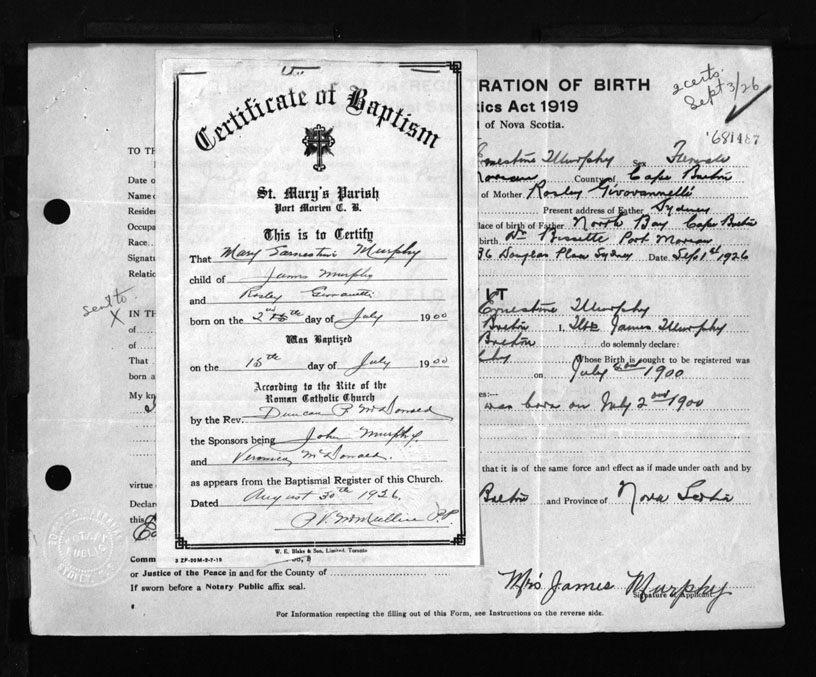 Certificate of Baptism
St. Mary's Parish
Port Morien C. B.
This is to Certify
That Mary Earnestine Murphy
child of James Murphy
and Rosley
born on the 2nd day of July 1900
Was Baptized
on the 15th day of July 1900
According to the Rite of the
Roman Catholic Church
by the Rev. Duncan P McDonald
the Sponsors being John Murphy
and Veronica McDonald.
as appears from the Baptismal Register of this Church.
Dated August 30th 1926.
P.P.
W. E. Blake & Son, Limited, Toronto
3 ZP-20M-2-7-19
2 certs.
Sept 3/26
RATION OF BIRTH
tics Act 1919
of Nova Scotia.
681487
TO TH
Ernestine Murphy Sex Female
Date o
County of Cape Breton
Name o
of Mother Rosley Giovannelli
Residen
Present address of Father Sydney
Occupa
lace of birth of Father North Bay Cape Breton
Race
birth. Dr Bissette Port Morien
Signatu
36 Douglas Place Sydney Date. Sept 1st 1926
Relatio
sent to
X
IN TH
Ernestine Murphy
of
Breton I, Mrs James Murphy
of
Breton do solemnly declare:
That
Whose Birth is sought to be registered was
born a
on July 2nd 1900
My kn
es:—
was born on July 2nd 1900
that it is of the same force and effect as if made under oath and by
virtue
Declare
Breton and Province of Nova Scotia
this
NOTARY
PUBLIC
SYDNEY, N.S.
Comm
or Justice of the Peace in and for the County of
If sworn before a Notary Public affix seal.
Mrs James Murphy
Signature of Applicant
For Information respecting the filling out of this Form, see Instructions on the reverse side.